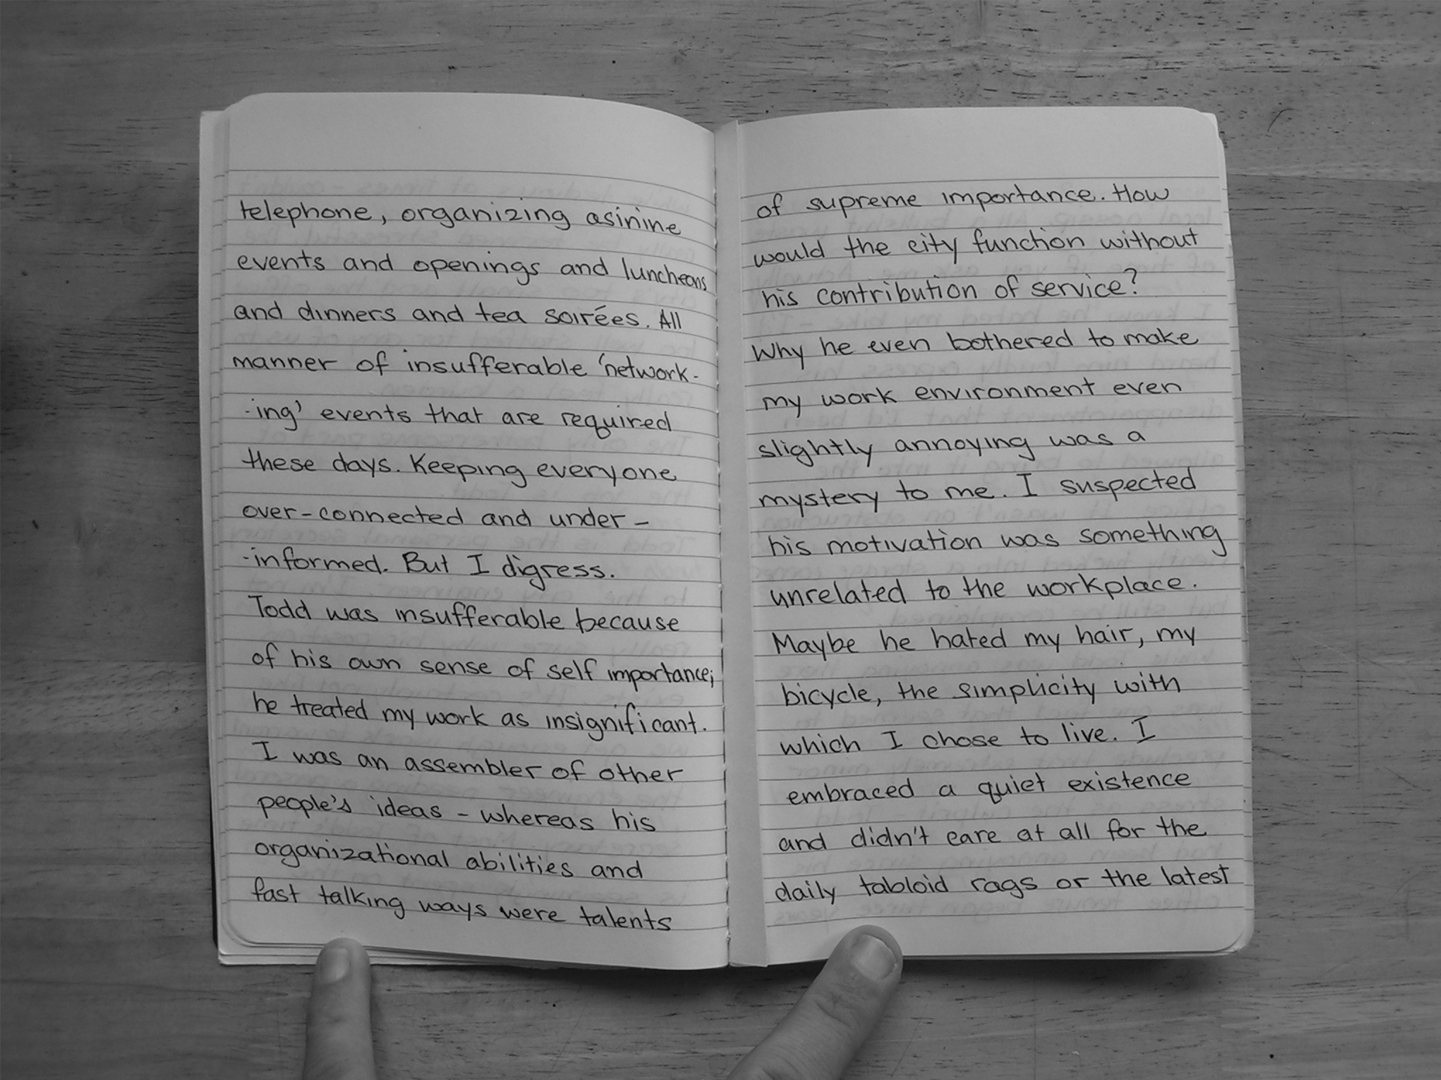 telephone, organizing asinine
events and openings and luncheons
and dinners and tea soirées. All
manner of insufferable 'network-
-ing' events that are required
these days. Keeping everyone
over-connected and under-
-informed. But I digress.
Todd was insufferable because
of his own sense of self importance;
he treated my work as insignificant.
I was an assembler of other
people's ideas - whereas his
organizational abilities and
fast talking ways were talents
of supreme importance. How
would the city function without
his contribution of service?
Why he even bothered to make
my work environment even
slightly annoying was a
mystery to me. I suspected
his motivation was something
unrelated to the workplace.
Maybe he hated my hair, my
bicycle, the simplicity with
which I chose to live. I
embraced a quiet existence
and didn't care at all for the
daily tabloid rags or the latest